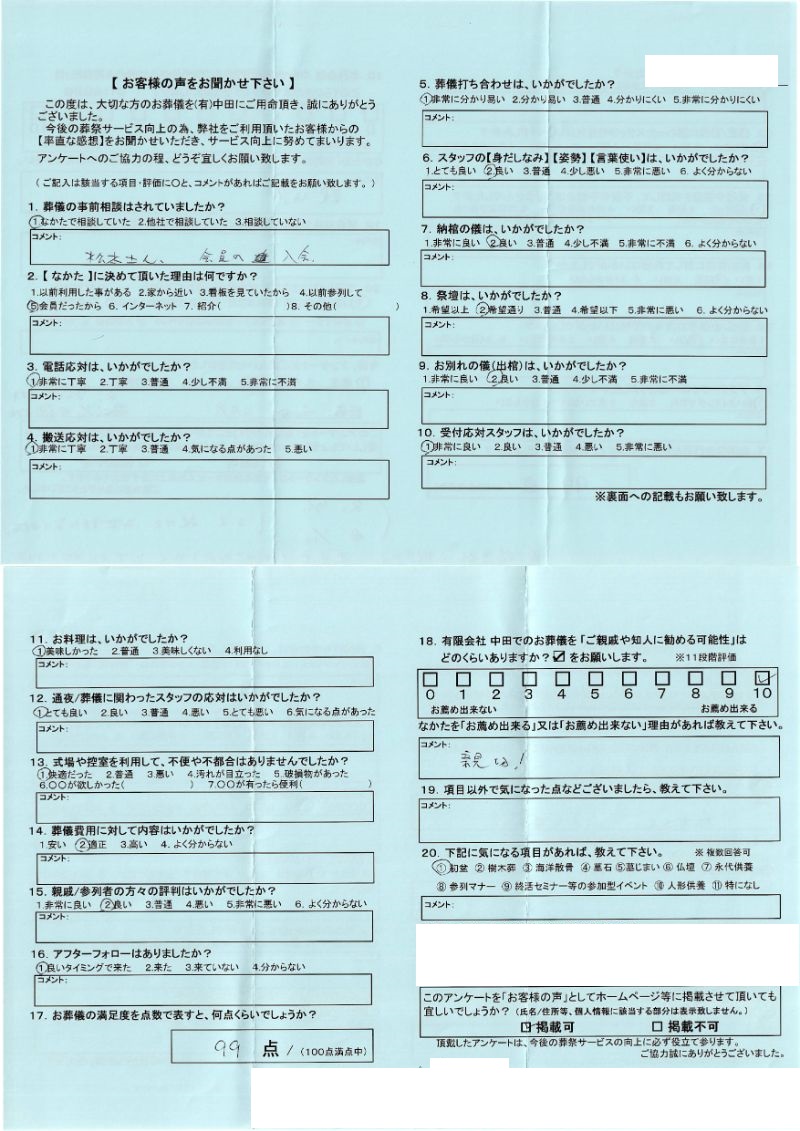 【 お客様の声をお聞かせ下さい 】
この度は、大切な方のお葬儀を(有)中田にご用命頂き、誠にありがとう
ございました。
今後の葬祭サービス向上の為、弊社をご利用頂いたお客様からの
【率直な感想】をお聞かせいただき、サービス向上に努めてまいります。
アンケートへのご協力の程、どうぞ宜しくお願い致します。
( ご記入は該当する項目・評価に〇と、コメントがあればご記載をお願い致します。 )
1. 葬儀の事前相談はされていましたか?
①なかたで相談していた 2.他社で相談していた 3.相談していない
コメント:
会員の 入会
2.【 なかた 】に決めて頂いた理由は何ですか?
1.以前利用した事がある 2.家から近い 3.看板を見ていたから 4.以前参列して
⑤会員だったから 6. インターネット 7. 紹介( )8. その他( )
コメント:
3. 電話応対は、いかがでしたか?
①非常に丁寧 2.丁寧 3.普通 4.少し不満 5.非常に不満
コメント:
4. 搬送応対は、いかがでしたか?
①非常に丁寧 2.丁寧 3.普通 4.気になる点があった 5.悪い
コメント:
5. 葬儀打ち合わせは、いかがでしたか?
①非常に分かり易い 2.分かり易い 3.普通 4.分かりにくい 5.非常に分かりにくい
コメント:
6. スタッフの【身だしなみ】【姿勢】【言葉使い】は、いかがでしたか?
1.とても良い ②良い 3.普通 4.少し悪い 5.非常に悪い 6. よく分からない
コメント:
7. 納棺の儀は、いかがでしたか?
1.非常に良い ②良い 3.普通 4.少し不満 5.非常に不満 6. よく分からない
コメント:
8. 祭壇は、いかがでしたか?
1.希望以上 ②希望通り 3.普通 4.希望以下 5.非常に悪い 6. よく分からない
コメント:
9. お別れの儀(出棺)は、いかがでしたか?
1.非常に良い ②良い 3.普通 4.少し不満 5.非常に不満
コメント:
10. 受付応対スタッフは、いかがでしたか?
①非常に良い 2.良い 3.普通 4.悪い 5.非常に悪い
コメント:
※裏面への記載もお願い致します。
11. お料理は、いかがでしたか?
①美味しかった 2.普通 3.美味しくない 4.利用なし
コメント:
12. 通夜/葬儀に関わったスタッフの応対はいかがでしたか?
①とても良い 2.良い 3.普通 4.悪い 5.とても悪い 6.気になる点があった
コメント:
13. 式場や控室を利用して、不便や不都合はありませんでしたか?
①快適だった 2.普通 3.悪い 4.汚れが目立った 5.破損物があった
6.〇〇が欲しかった( ) 7.〇〇が有ったら便利( )
コメント:
14. 葬儀費用に対して内容はいかがでしたか?
1.安い ②適正 3.高い 4. よく分からない
コメント:
15. 親戚/参列者の方々の評判はいかがでしたか?
1.非常に良い ②良い 3.普通 4.悪い 5.非常に悪い 6. よく分からない
コメント:
16. アフターフォローはありましたか?
①良いタイミングで来た 2.来た 3.来ていない 4.分からない
コメント:
17. お葬儀の満足度を点数で表すと、何点くらいでしょうか?
99 点 / (100点満点中)
18. 有限会社 中田でのお葬儀を「ご親戚や知人に勧める可能性」は
どのくらいありますか? ☑ をお願いします。 ※11段階評価
□ □ □ □ □ □ □ □ □ □ ☑
0 1 2 3 4 5 6 7 8 9 10
お薦め出来ない お薦め出来る
なかたを「お薦め出来る」又は「お薦め出来ない」理由があれば教えて下さい。
コメント:
親切!
19. 項目以外で気になった点などございましたら、教えて下さい。
コメント:
20. 下記に気になる項目があれば、教えて下さい。 ※ 複数回答可
① 初盆 ② 樹木葬 ③ 海洋散骨 ④ 墓石 ⑤墓じまい ⑥ 仏壇 ⑦ 永代供養
⑧ 参列マナー ⑨ 終活セミナー等の参加型イベント ⑩ 人形供養 ⑪ 特になし
コメント:
このアンケートを「お客様の声」としてホームページ等に掲載させて頂いても
宜しいでしょうか? (氏名/住所等、個人情報に該当する部分は表示致しません。)
☑ 掲載可 □ 掲載不可
頂戴したアンケートは、今後の葬祭サービスの向上に必ず役立て参ります。
ご協力誠にありがとうございました。